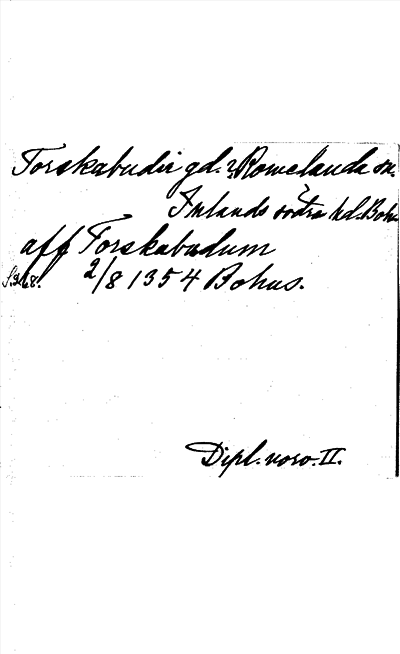 Torskabudir gd. ? Romelanda sn.
Inlands södra hd. Boh.
aff Torskabudum
S. 268. 2/8 1354 Bohus.
Dipl. norv. II.